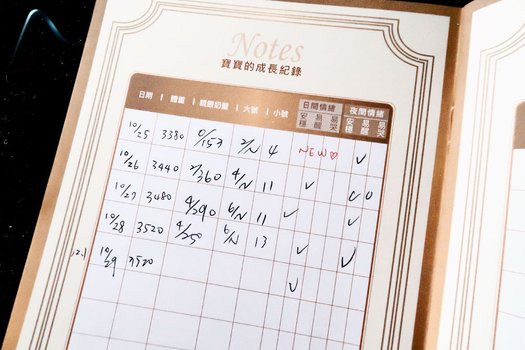 Notes
寶寶的成長紀錄
日期 體重 親餵奶量 大號 小號 日間情緒 夜間情緒
安穩 易醒 易哭 安穩 易醒 易哭
10/25 3380 0/153 2/N 4 NEW♡ ✓
10/26 3440 2/360 4/N 11 ✓ ✓
10/27 3480 4/390 6/N 11 ✓ ✓
10/28 3520 4/250 6/N 13 ✓ ✓
10/29 3520 ✓